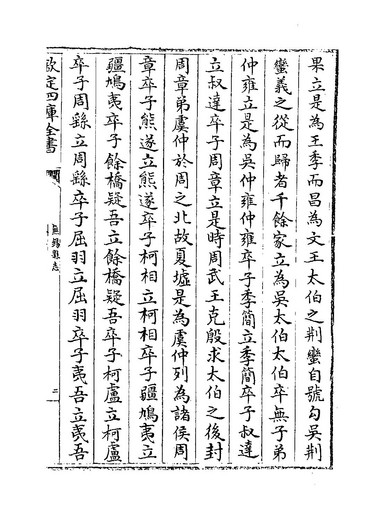 果立是為王季而昌為文王太伯之荆蠻自號勾吳荆
蠻義之從而歸者千餘家立為吳太伯太伯卒無子弟
仲雍立是為吳仲雍仲雍卒子季簡立季簡卒子叔達
立叔達卒子周章立是時周武王克殷求太伯之後封
周章弟虞仲於周之北故夏墟是為虞仲列為諸侯周
章卒子熊遂立熊遂卒子柯相立柯相卒子疆鳩夷立
疆鳩夷卒子餘橋疑吾立餘橋疑吾卒子柯盧立柯盧
卒子周繇立周繇卒子屈羽立屈羽卒子夷吾立夷吾
欽定四庫全書
無錫縣志
二